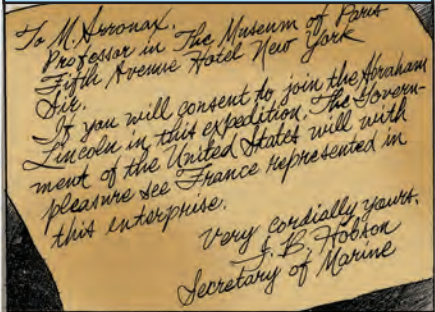 To M. Arronax.
Professor in The Museum of Paris
Fifth Avenue Hotel New York
Sir.
If you will consent to join the Abraham
Lincoln in this expedition. The Govern-
ment of the United States will with
pleasure see France represented in
this enterprise.
Very cordially yours.
J. B. Hobson
Secretary of Marine